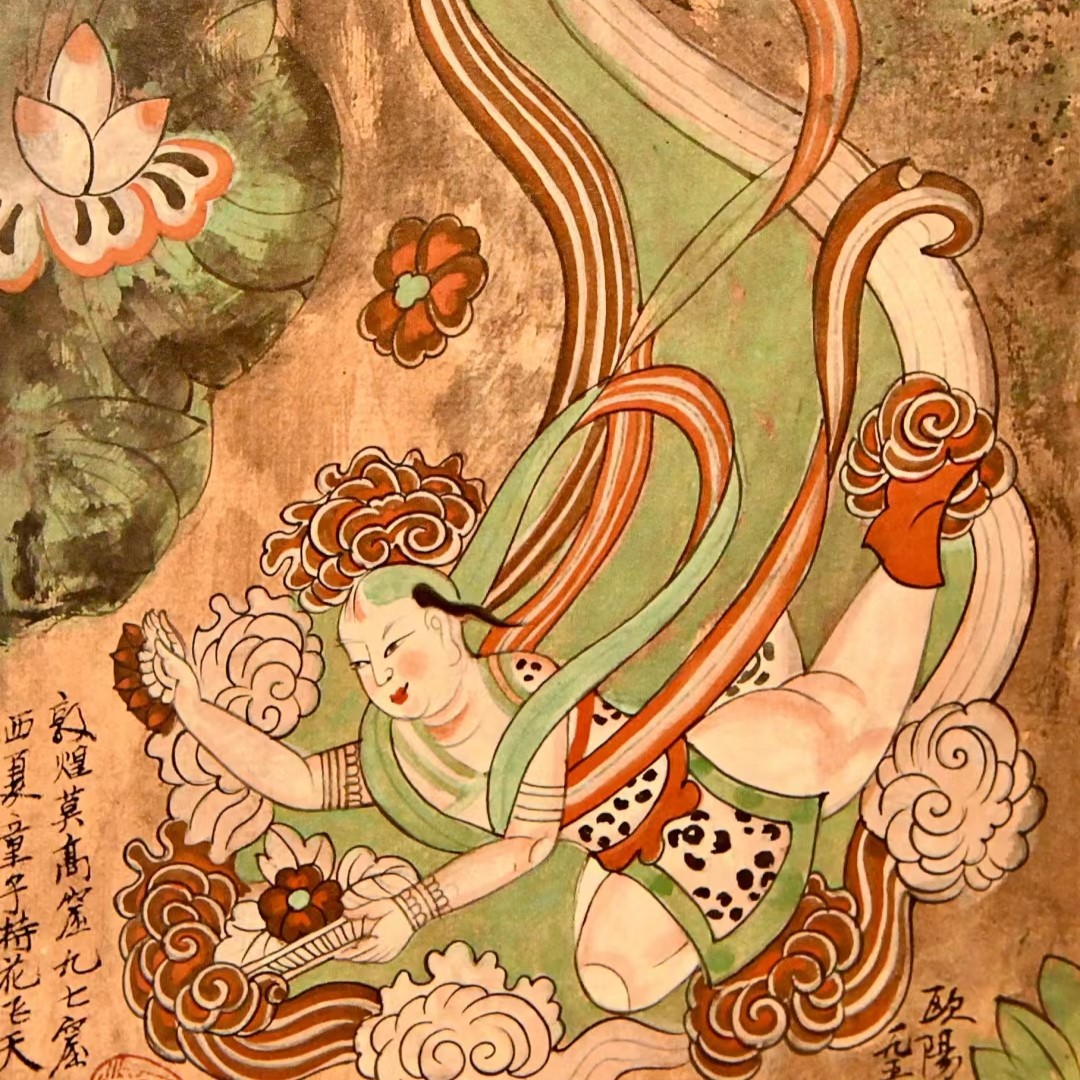 敦煌莫高窟九七窟
西夏童子持花飞天
欧陽